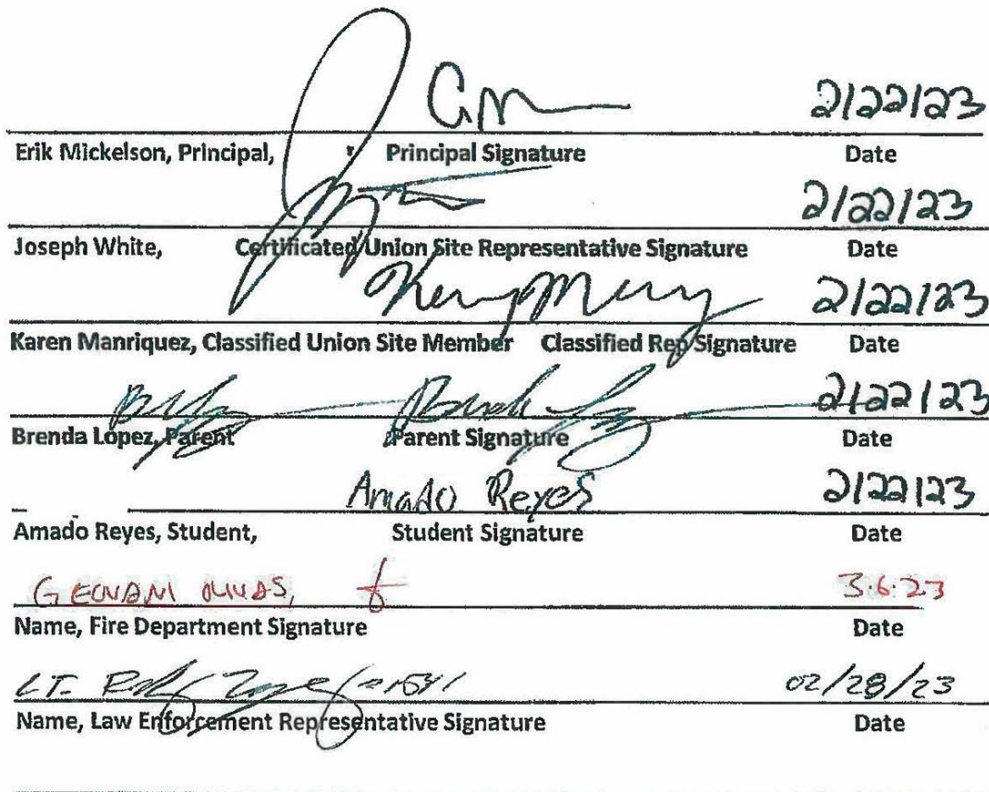 2/22/23
Erik Mickelson, Principal, Principal Signature Date
2/22/23
Joseph White, Certificated Union Site Representative Signature Date
2/22/23
Karen Manriquez, Classified Union Site Member Classified Rep Signature Date
2/22/23
Brenda Lopez, Parent Parent Signature Date
Amado Reyes 2/22/23
Amado Reyes, Student, Student Signature Date
3.6.23
Name, Fire Department Signature Date
LT. 02/28/23
Name, Law Enforcement Representative Signature Date